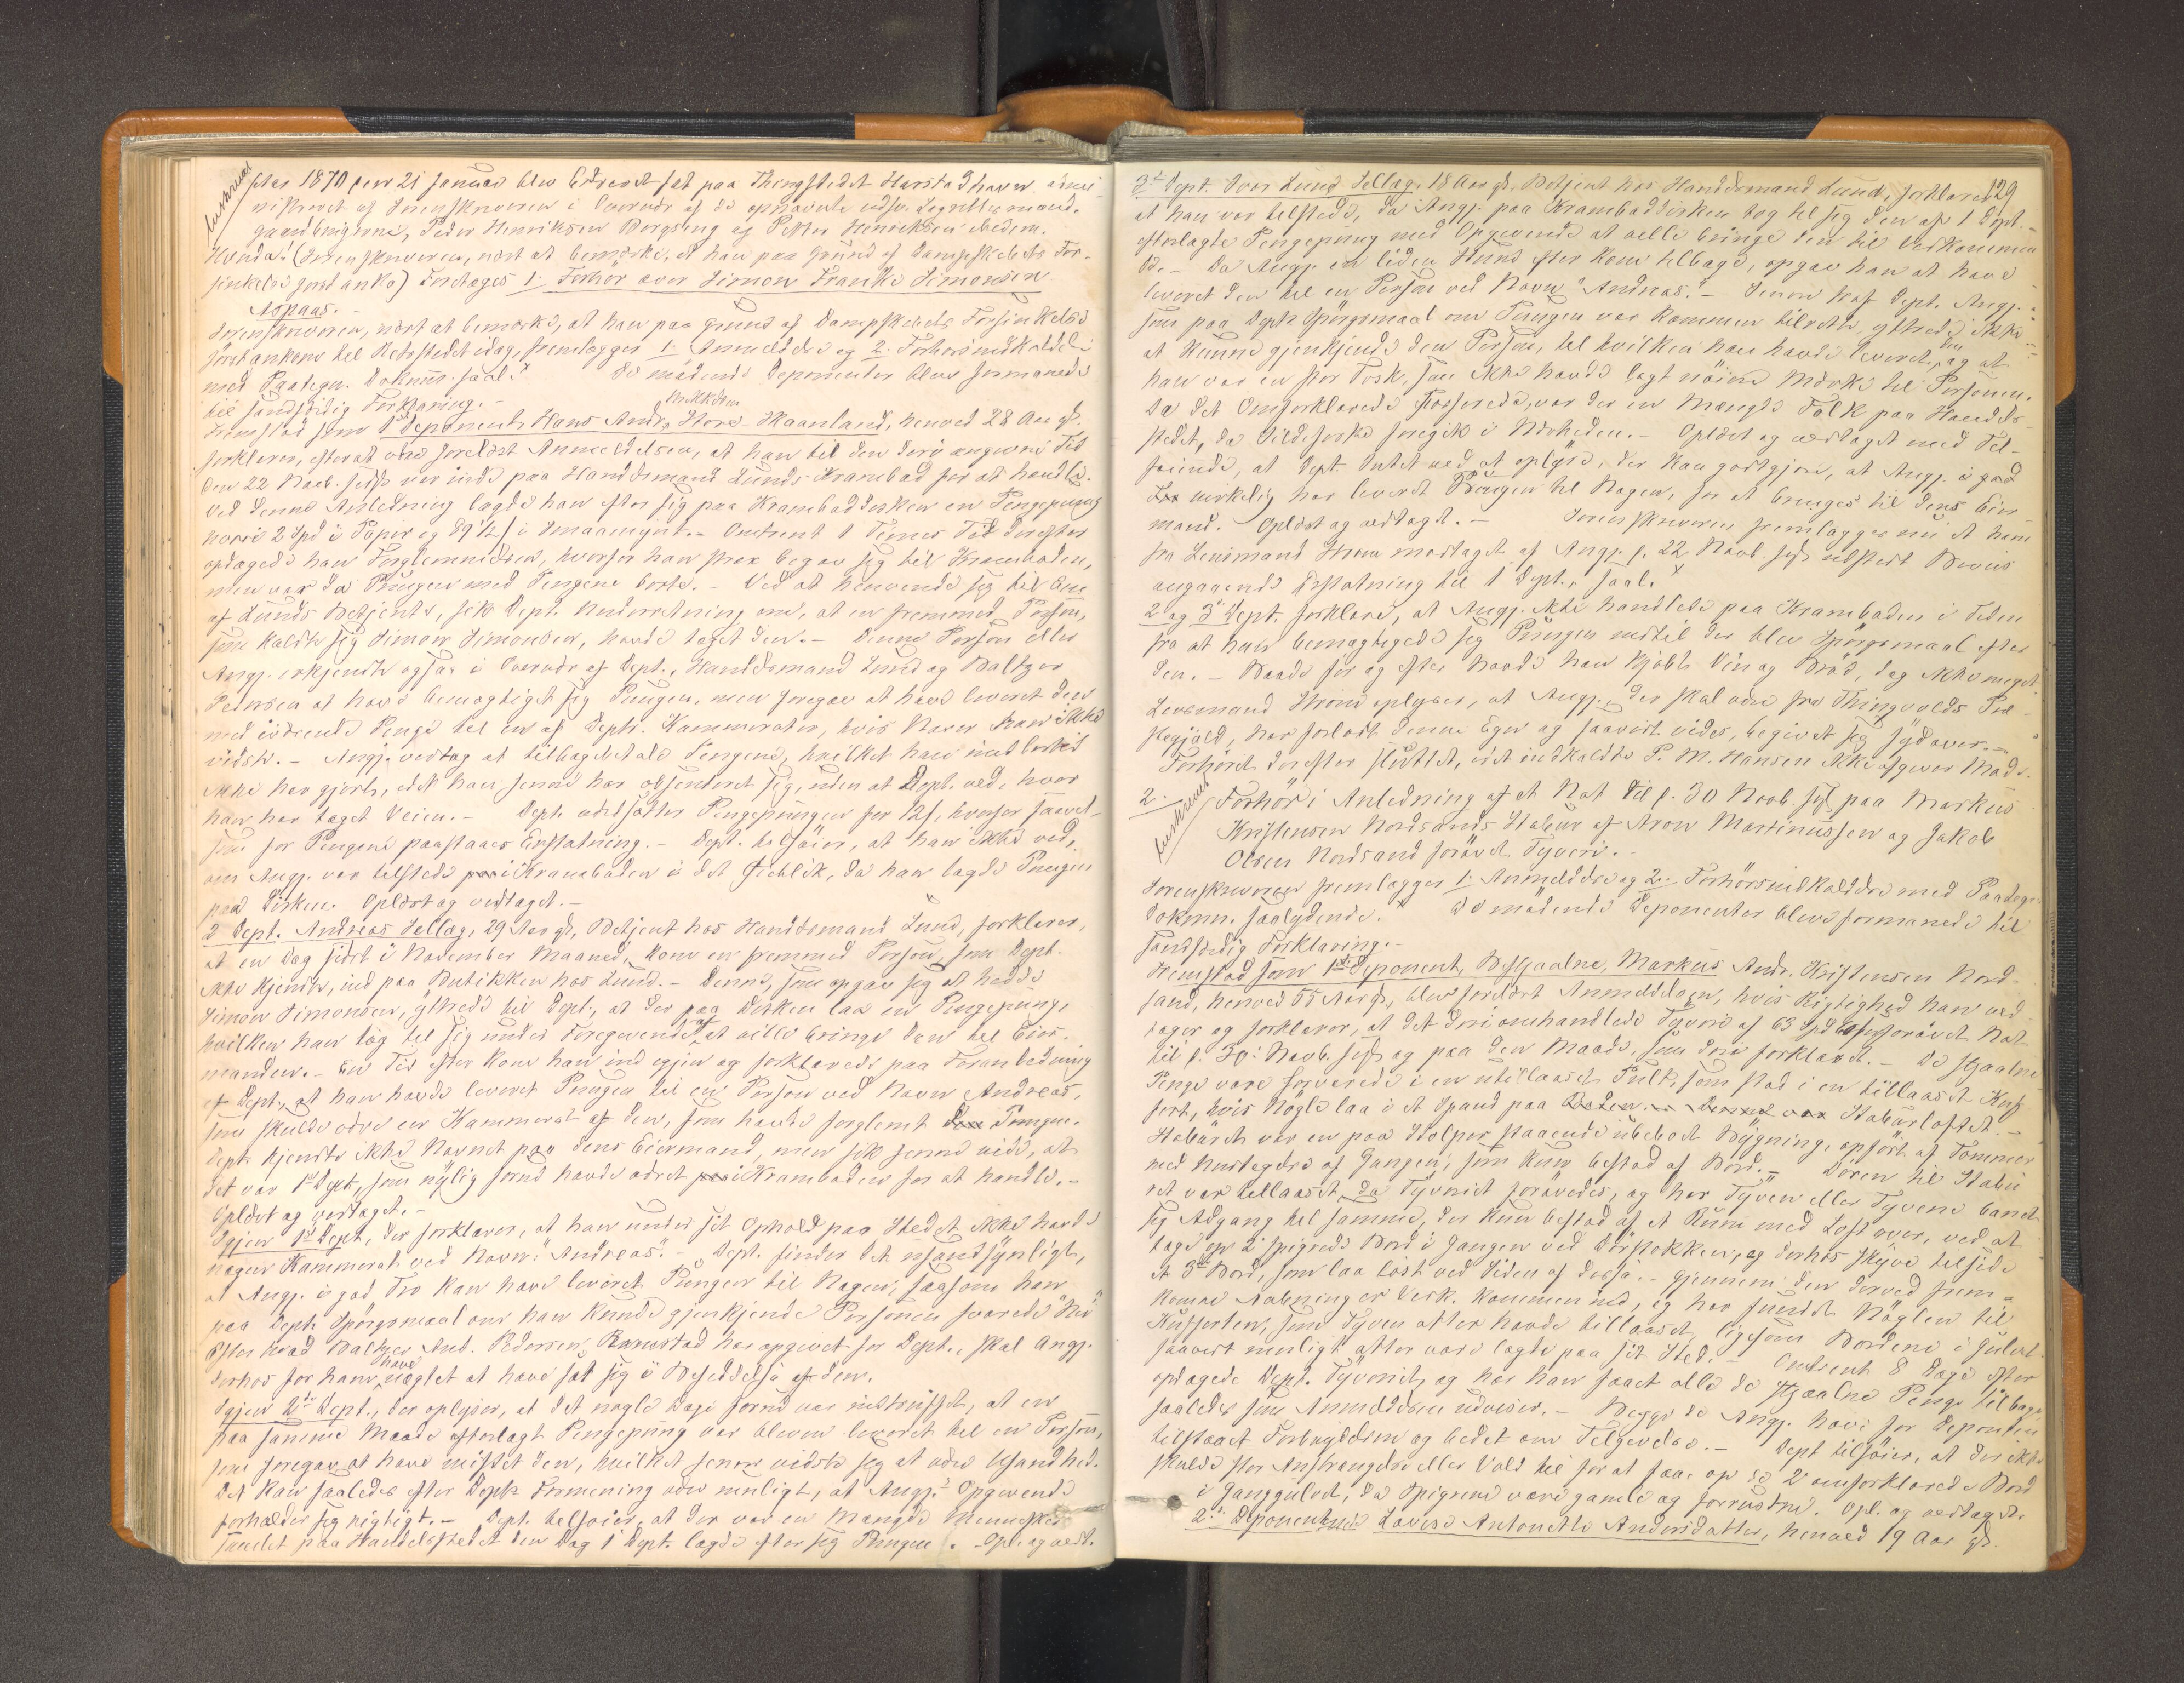 Udskreven
Aar 1870 den 21 Januar blev Extraret sat paa Thingstedet Harstadhavn admi-
nistreret af Sorenskriveren i Overvær af de opnævnte edsv. Lagrettesmænd.
gaardbrugerne, Peder Henriksen Bergseng og Petter Henriksen ibidem.
Hvorda! (Sorenskriveren, nøst at bemærke, at han paa Grund af Dampskibets For-
sinkelse først ankom) Foretoges 1. Forhør over Simon Franke Simonsen
Aspaas.-
Sorenskriveren, nøst at bemærke, at han paa Grund af Dampskibets Forsinkelse
først ankom til Retsstedet idag, fremlægger 1. Anmeldelse og 2. Forhørsindkaldelse
med Paategn. Dokum. saal. De mødende Deponenter blev formanede
til sandfærdig Forklaring.-
Mikkelsen
Fremstod som 1 Deponent Hans Andr. Store-Haanland, henved 28 Aar gl.
forklarer, efterat være forelæst Anmeldelsen, at han til den deri angivne Tid
den 22 Novb. sidstl. var inde paa Handelsmand Lunds Krambod for at handle.
Ved denne Anledning lagde han efter sig paa Kramboddisken en Pengepung
hvori 2 Spd i Papir og 89 1/2 s i Smaamynt.- Omtrent 1 Times Tid derefter
opdagede han Forglemmelsen, hvorfor han strax begav sig til Kramboden,
men var da Pungen med Pengene borte.- Ved at henvende sig til En
af Lunds Betjente, fik Dept. Underretning om, at en fremmed Person,
som kaldte sig Simon Simonsen, havde taget den.- Denne Person eller
Angj. erkjendte ogsaa i Overvær af Dept., Handelsmand Lund og Baltzer
Pedersen at have bemægtiget sig Pungen, men foregav at have leveret den
med iværende Penge til en af Depts. Kammerater, hvis Navn han ikke
vidste.- Angj. vedtog at tilbagebetale Pengene, hvilket han imidlertid
ikke har gjort, idet han senere har absenteret sig, uden at Dept. ved, hvor
han har taget Veien.- Dept. værdsætter Pengepungen for 12 s, hvorfor saavel-
som for Pengene paastaaes Erstatning.- Dept. tilføier, at han ikke ved,
om Angj. var tilstede i Kramboden i det Øieblik, da han lagde Pungen
paa Disken. Oplæst og vedtaget.-
2 Dept. Andreas Sellæg, 29 Aar gl., Betjent hos Handelsmand Lund, forklarer,
at en Dag sidst i November Maaned, kom en fremmed Person, som Dept.
ikke kjendte, ind paa Butikken hos Lund.- Denne, som opgav sig at hedde
Simon Simonsen, yttrede til Dept., at der paa Disken laa en Pengepung,
hvilken han tog til sig under Foregivende af at ville bringe den til Eier-
manden.- En Tid efter kom han ind igjen og forklarede paa Foranledning
af Dept., at han havde leveret Pungen til en Person ved Navn Andreas,
som skulde være en Kammerat af den, som havde forglemt Pungen.
Dept. kjendte ikke Navnet paa dens Eiermand, men fik senere vide, at
det var 1ste Dept., som nylig forud havde været i Kramboden for at handle.-
Oplæst og vedtaget.-
Igjen 1ste Dept., der forklarer, at han under sit Ophold paa Stedet ikke havde
nogen Kammerat ved Navn "Andreas".- Dept. finder det usandsynligt,
at Angj. i god Tro kan have leveret Pungen til Nogen, saasom han
paa Depts. Spørgsmaal om han kunde gjenkjende Personen svarede "Nei"
Efter hvad Baltzer And. Pedersen, Ramstad har opgivet for Dept., skal Angj.
derhos for ham have nægtet at have sat sig i Besiddelse af dem.
Igjen 2den Dept., der oplyser, at det nogle Dage forud var indtruffet, at en
paa samme Maade efterlagt Pengepung var bleven leveret til en Person,
som foregav at have mistet den, hvilket senere vidste sig at være Usandhed.
Det kan saaledes efter Depts Formening være muligt, at Angj.s Opgivende
forholder sig rigtigt.- Dept. tilføier, at der var en Mængde Mennesker
samlet paa Handelsstedet den Dag 1 Dept. lagde efter sig Pungen. Opl. og vedt.
129
3de Dept. Ivar Lund Sellæg, 18 Aar gl. Betjent hos Handelsmand Lund, forklarede
at han var tilstede, da Angj. paa Kramboddisken tog til sig den af 1 Dept.
efterlagte Pengepung med Opgivende at ville bringe den til Vedkommen-
de.- Da Angj. en liden Stund efter kom tilbage, opgav han at have
leveret den til en Person ved Navn "Andreas".- Senere traf Dept. Angj.
som paa Depts Spørgsmaal om Pungen var kommen tilrette, yttrede ikke
at kunne gjenkjende den Person, til hvilken han havde leveret den, og at
han var en stor Tosk, som ikke havde lagt nøiere Mærke til Personen.
Da det Omforklarede passerede, var der en Mængde Folk paa Handels-
stedet, da Sildefiske foregik i Nærheden.- Oplæst og vedtaget med Til-
føiende, at Dept. Intet ved at oplyse, der kan godtgjøre, at Angj. i god
Tro virkelig har leveret Pungen til Nogen, for at bringes til dens Eier-
mand. Oplæst og vedtaget.- Sorenskriveren fremlægger nu et ham
fra Lensmand Strøm modtaget af Angj. p. 22 Novb. sidstl. udstedt Bevis
angaaende Erstatning til 1 Dept., saal.
2 og 3de Dept. forklare, at Angj. ikke handlede paa Kramboden i Tiden
fra at han bemægtigede sig Pungen indtil der blev Spørgsmaal efter
den.- Baade før og efter havde han kjøbt Vin og Brød, dog ikke meget.
Lensmand Strøm oplyser, at Angj., der skal være fra Thingvolds Præ-
stegjæld, har forladt denne Egn og saavidt vides, begivet sig sydover.-
Forhøret derefter sluttet, idet indkaldte P. M. Hansen ikke afgiver Møde.
2.
Udskreven
Forhør i Anledning af et Nat til p. 30 Novb. sidstl. paa Markus
Kristensen Nordsands Stabur af Aron Martinussen og Jakob
Olsen Nordsand forøvet Tyveri.-
Sorenskriveren fremlægger 1. Anmeldelse og 2. Forhørsindkaldelse med Paategn.
Dokum. saalydende. De mødende Deponenter bleve formanede til
sandfærdig Forklaring.-
Fremstod som 1ste Deponent, Bestjaalne, Markus Andr. Kristensen Nord-
sand, henved 55 Aar gl., blev forelæst Anmeldelsen, hvis Rigtighed han ved-
tager og forklarer, at det deri omhandlede Tyveri af 63 Spd er forøvet Nat
til p. 30. Novb. sidstl. og paa den Maade, som deri forklaret.- De stjaalne
Penge vare forvarede i en utillaaset Pult, som stod i en tillaaset Kuf-
fert, hvis Nøgle laa i et Spand paa Staburloftet.-
Staburet var en paa Stolper staaende ubeboet Bygning, opført af Tømmer
med Undtagelse af Gangen, som kun bestod af Bord.- Døren til Stabu-
ret var tillaaset, da Tyveriet forøvedes, og har Tyven eller Tyvene banet
sig Adgang til samme, der kun bestod af et Rum med Loft over, ved at
tage op 2 spigrede Bord i Gangen ved Dørstokken, og derhos skyve tilside
et 3die Bord, som laa løst ved Siden af disse.- Gjennem den derved frem-
komne Aabning er Vedk. kommen ind, og har fundet Nøglen til
Kufferten, som Tyven atter havde tillaaset, ligesom Bordene i Gulvet
saavidt muligt atter vare lagte paa sit Sted.- Omtrent 8 Dage efter
opdagede Dept. Tyveriet, og har han faaet alle de stjaalne Penge tilbage
saaledes som Anmeldelsen udviser.- Begge de Angj. have for Deponenten
tilstaaet Forbrydelsen og bedet om Tilgivelse.- Dept tilføier, at der ikke
skulde stor Anstrængelse eller Vold til for at faae op de 2 omforklarede Bord
i Ganggulvet, da Spigrene vare gamle og forrustne. Opl. og vedtaget.
2den Deponentinde Lovise Antonette Andersdatter, henved 19 Aar gl.